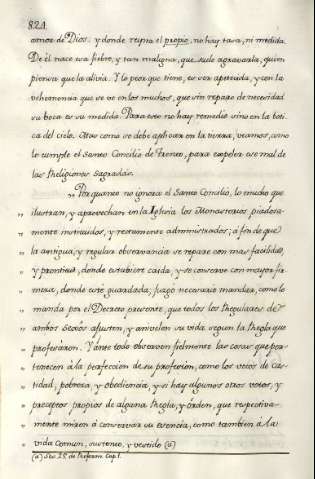 824
amor de Dios. y donde reyna el propio, no hay tasa, ni medida.
De él nace esa fiebre, y tan maligna, que suele agravarla, quien
piensa que la alivia. Y lo peor que tiene, es ser apetecida, y con la
vehemencia que se ve en los muchos, que sin reparo de necesidad
su boca es su medida. Para esto no hay remedio sino en la boti-
ca del cielo. Mas como se debe aplicar en la tierra, veamos, como
lo cumple el Santo Concilio de Trento, para expeler ese mal de
las Religiones Sagradas.
"Por quanto no ignora el Santo Concilio, lo mucho que
" ilustran, y aprovechan en la Iglesia los Monasterios piadosa-
" mente instituidos, y rectamente administrados; a fin de que
" la antigua, y regular observancia se repare con mas facilidad,
" y prontitud, donde estubiere caida, y se conserve con mayor fir-
" meza, donde este guardada; juzgó necesario mandar, como lo
" manda por el Decreto presente, que todos los Regulares de
" ambos Sexos ajusten, y nivelen su vida segun la Regla que
" profesaron. Y ante todo observen fielmente las cosas que per-
" tenecen á la perfeccion de su profesion, como los votos de Cas-
" tidad, pobreza, y obediencia, y si hay algunos otros votos, y
" preceptos propios de alguna Regla, y órden, que respectiva-
" mente miren á conservar su esencia, como tambien á la
" vida comun, sustento, y vestido (a)
(a) Ses. 25 de Reform. Cap. 1.